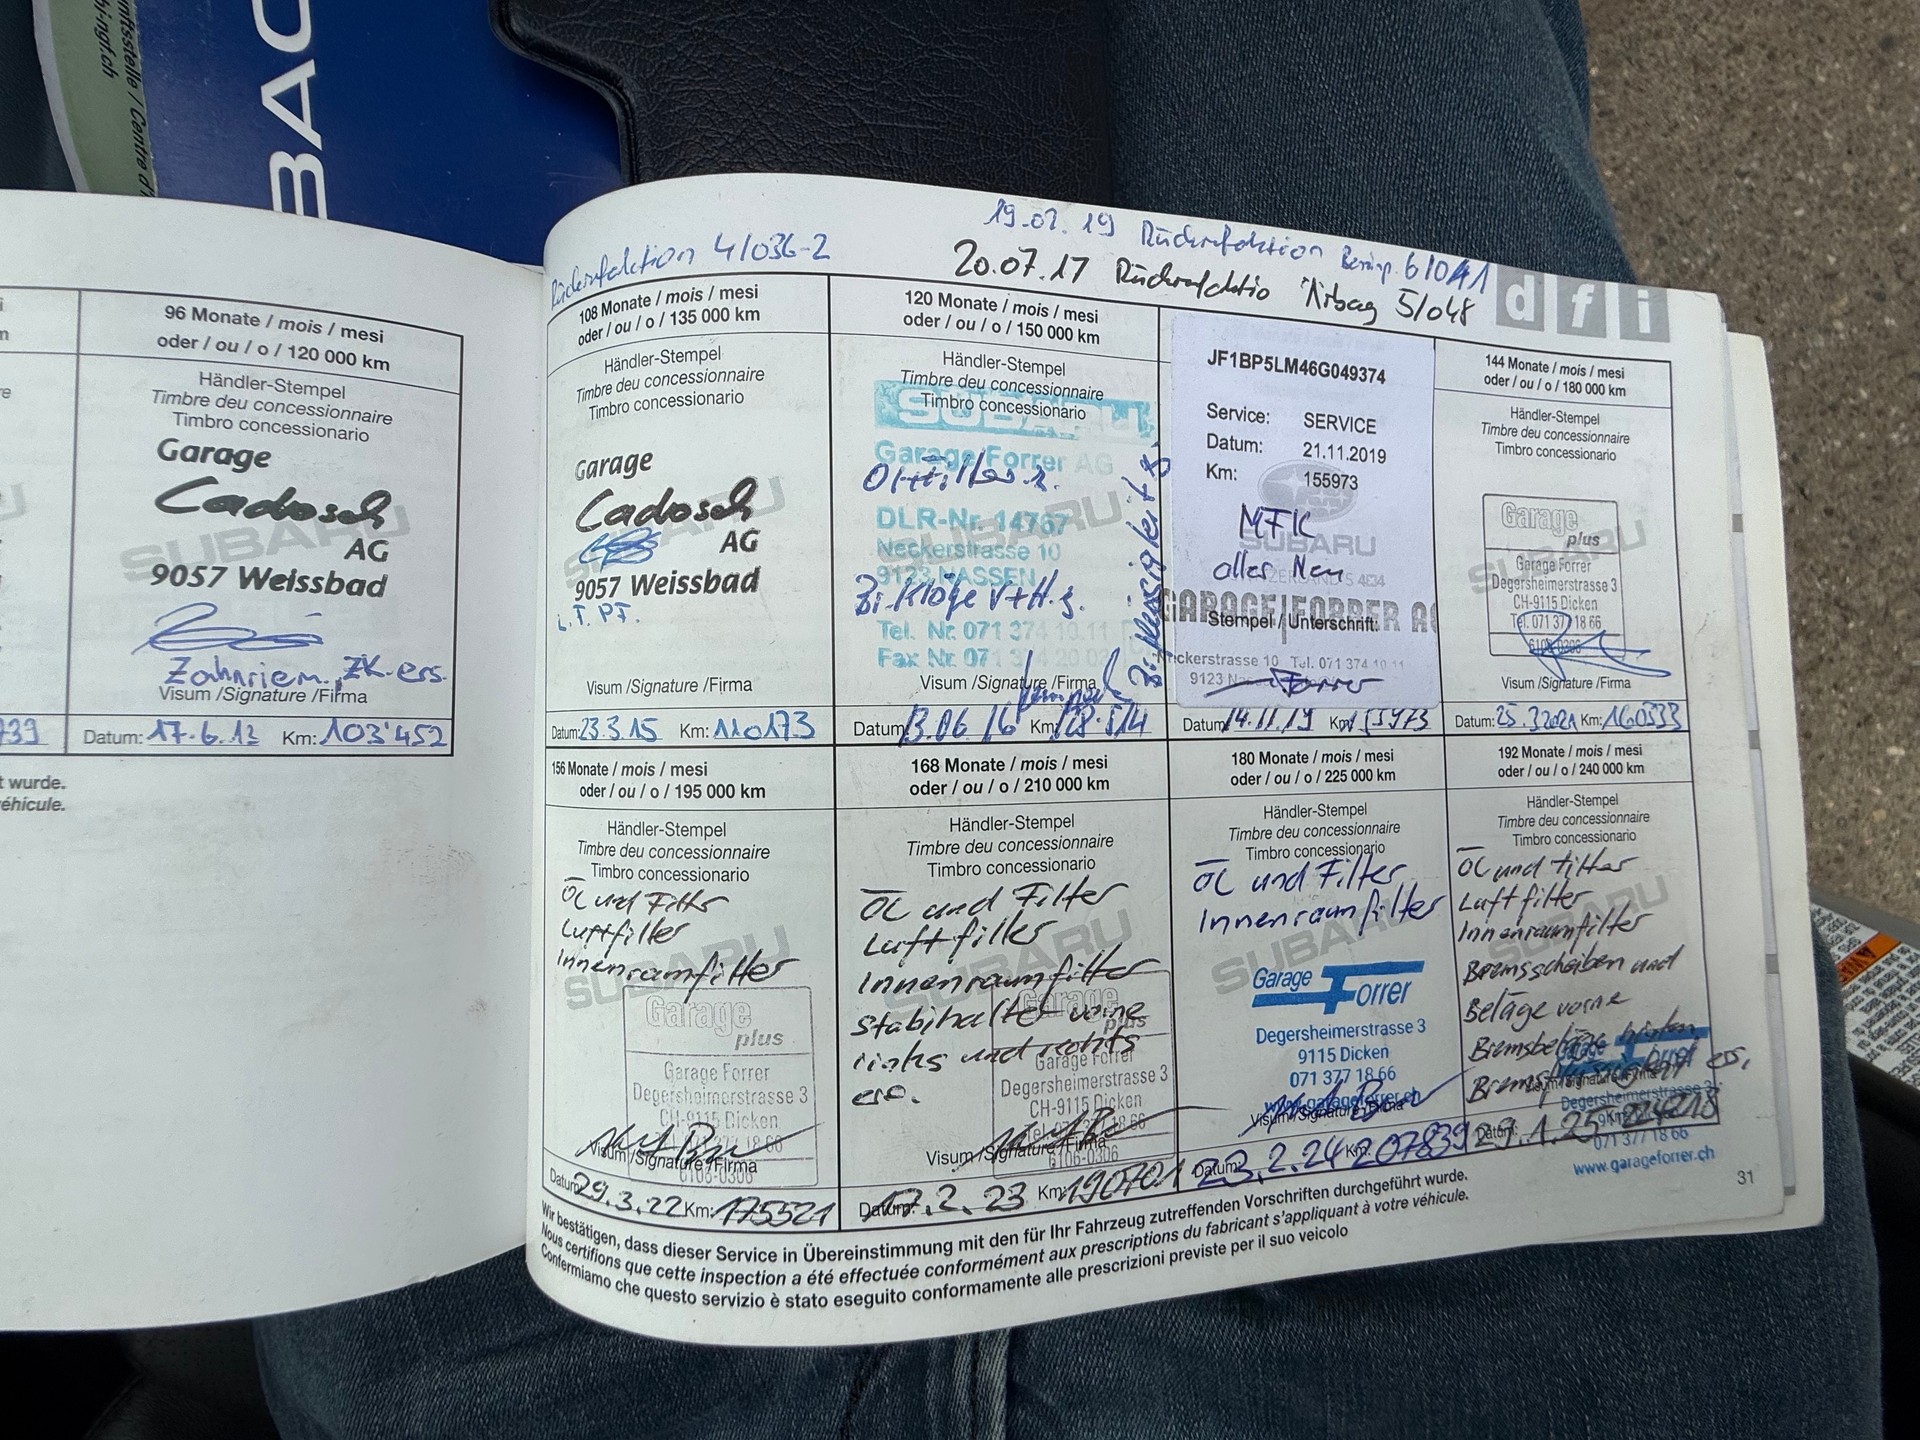 BAC
nftsstelle / Centre d'
bi-ngf.ch
96 Monate / mois / mesi
oder / ou / o / 120 000 km
Händler-Stempel
Timbre deu concessionnaire
Timbro concessionario
Garage
Cadosch
AG
9057 Weissbad
SUBARU
Zahnriem., ZK ers.
Visum /Signature /Firma
Datum: 17.6.13 Km: 103'452
t wurde.
éhicule.
Rückrufaktion 4/036-2
19.02.19 Rückrufaktion 6/041
20.07.17 Rückrufaktio Airbag 5/048
dfi
108 Monate / mois / mesi
oder / ou / o / 135 000 km
Händler-Stempel
Timbre deu concessionnaire
Timbro concessionario
Garage
Cadosch
AG
9057 Weissbad
SUBARU
Visum /Signature /Firma
Datum: 23.3.15 Km: 110173
120 Monate / mois / mesi
oder / ou / o / 150 000 km
Händler-Stempel
Timbre deu concessionnaire
Timbro concessionario
SUBARU
Garage Forrer AG
DLR-Nr. 14767
Neckerstrasse 10
9123 NASSEN
Br. Klötze V+H.
Tel. Nr. 071 374 10 11
Fax Nr. 071 374 20 03
Visum /Signature /Firma
Datum: 13.06.16 Km:
JF1BP5LM46G049374
Service: SERVICE
Datum: 21.11.2019
Km: 155973
MFK
alles Neu
SUBARU
GARAGE FORRER AG
Stempel / Unterschrift:
Neckerstrasse 10 Tel. 071 374 10 11
9123
Forrer
Datum: 14.11.19 Km: 155973
144 Monate / mois / mesi
oder / ou / o / 180 000 km
Händler-Stempel
Timbre deu concessionnaire
Timbro concessionario
Garage
plus
Garage Forrer
Degersheimerstrasse 3
CH-9115 Dicken
Tel. 071 377 18 66
6106-0306
SUBARU
Visum /Signature /Firma
Datum: 25.3.2021 Km: 160533
156 Monate / mois / mesi
oder / ou / o / 195 000 km
Händler-Stempel
Timbre deu concessionnaire
Timbro concessionario
Öl und Filter
Luftfilter
Innenraumfilter
SUBARU
Garage
plus
Garage Forrer
Degersheimerstrasse 3
CH-9115 Dicken
Visum /Signature /Firma
6106-0306
Datum: 29.3.22 Km: 175521
168 Monate / mois / mesi
oder / ou / o / 210 000 km
Händler-Stempel
Timbre deu concessionnaire
Timbro concessionario
Öl und Filter
Luftfilter
Innenraumfilter
Stabihalter vorne
links und rechts
ers.
SUBARU
Garage
plus
Garage Forrer
Degersheimerstrasse 3
CH-9115 Dicken
Visum /Signature /Firma
6106-0306
Datum: 17.2.23 Km: 190701
180 Monate / mois / mesi
oder / ou / o / 225 000 km
Händler-Stempel
Timbre deu concessionnaire
Timbro concessionario
Öl und Filter
Innenraumfilter
SUBARU
Garage Forrer
Degersheimerstrasse 3
9115 Dicken
071 377 18 66
www.garageforrer.ch
Visum /Signature /Firma
Datum: 23.2.24 Km: 207839
192 Monate / mois / mesi
oder / ou / o / 240 000 km
Händler-Stempel
Timbre deu concessionnaire
Timbro concessionario
Öl und Filter
Luftfilter
Innenraumfilter
Bremsscheiben und
Beläge vorne
Bremsbeläge hinten
Bremsflüssigkeit ers.
SUBARU
Degersheimerstrasse 3
Datum: 29.1.25 Km: 224218
071 377 18 66
www.garageforrer.ch
Wir bestätigen, dass dieser Service in Übereinstimmung mit den für Ihr Fahrzeug zutreffenden Vorschriften durchgeführt wurde.
Nous certifions que cette inspection a été effectuée conformément aux prescriptions du fabricant s'appliquant à votre véhicule.
Confermiamo che questo servizio è stato eseguito conformamente alle prescrizioni previste per il suo veicolo
31